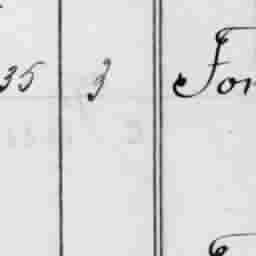 35 3 For